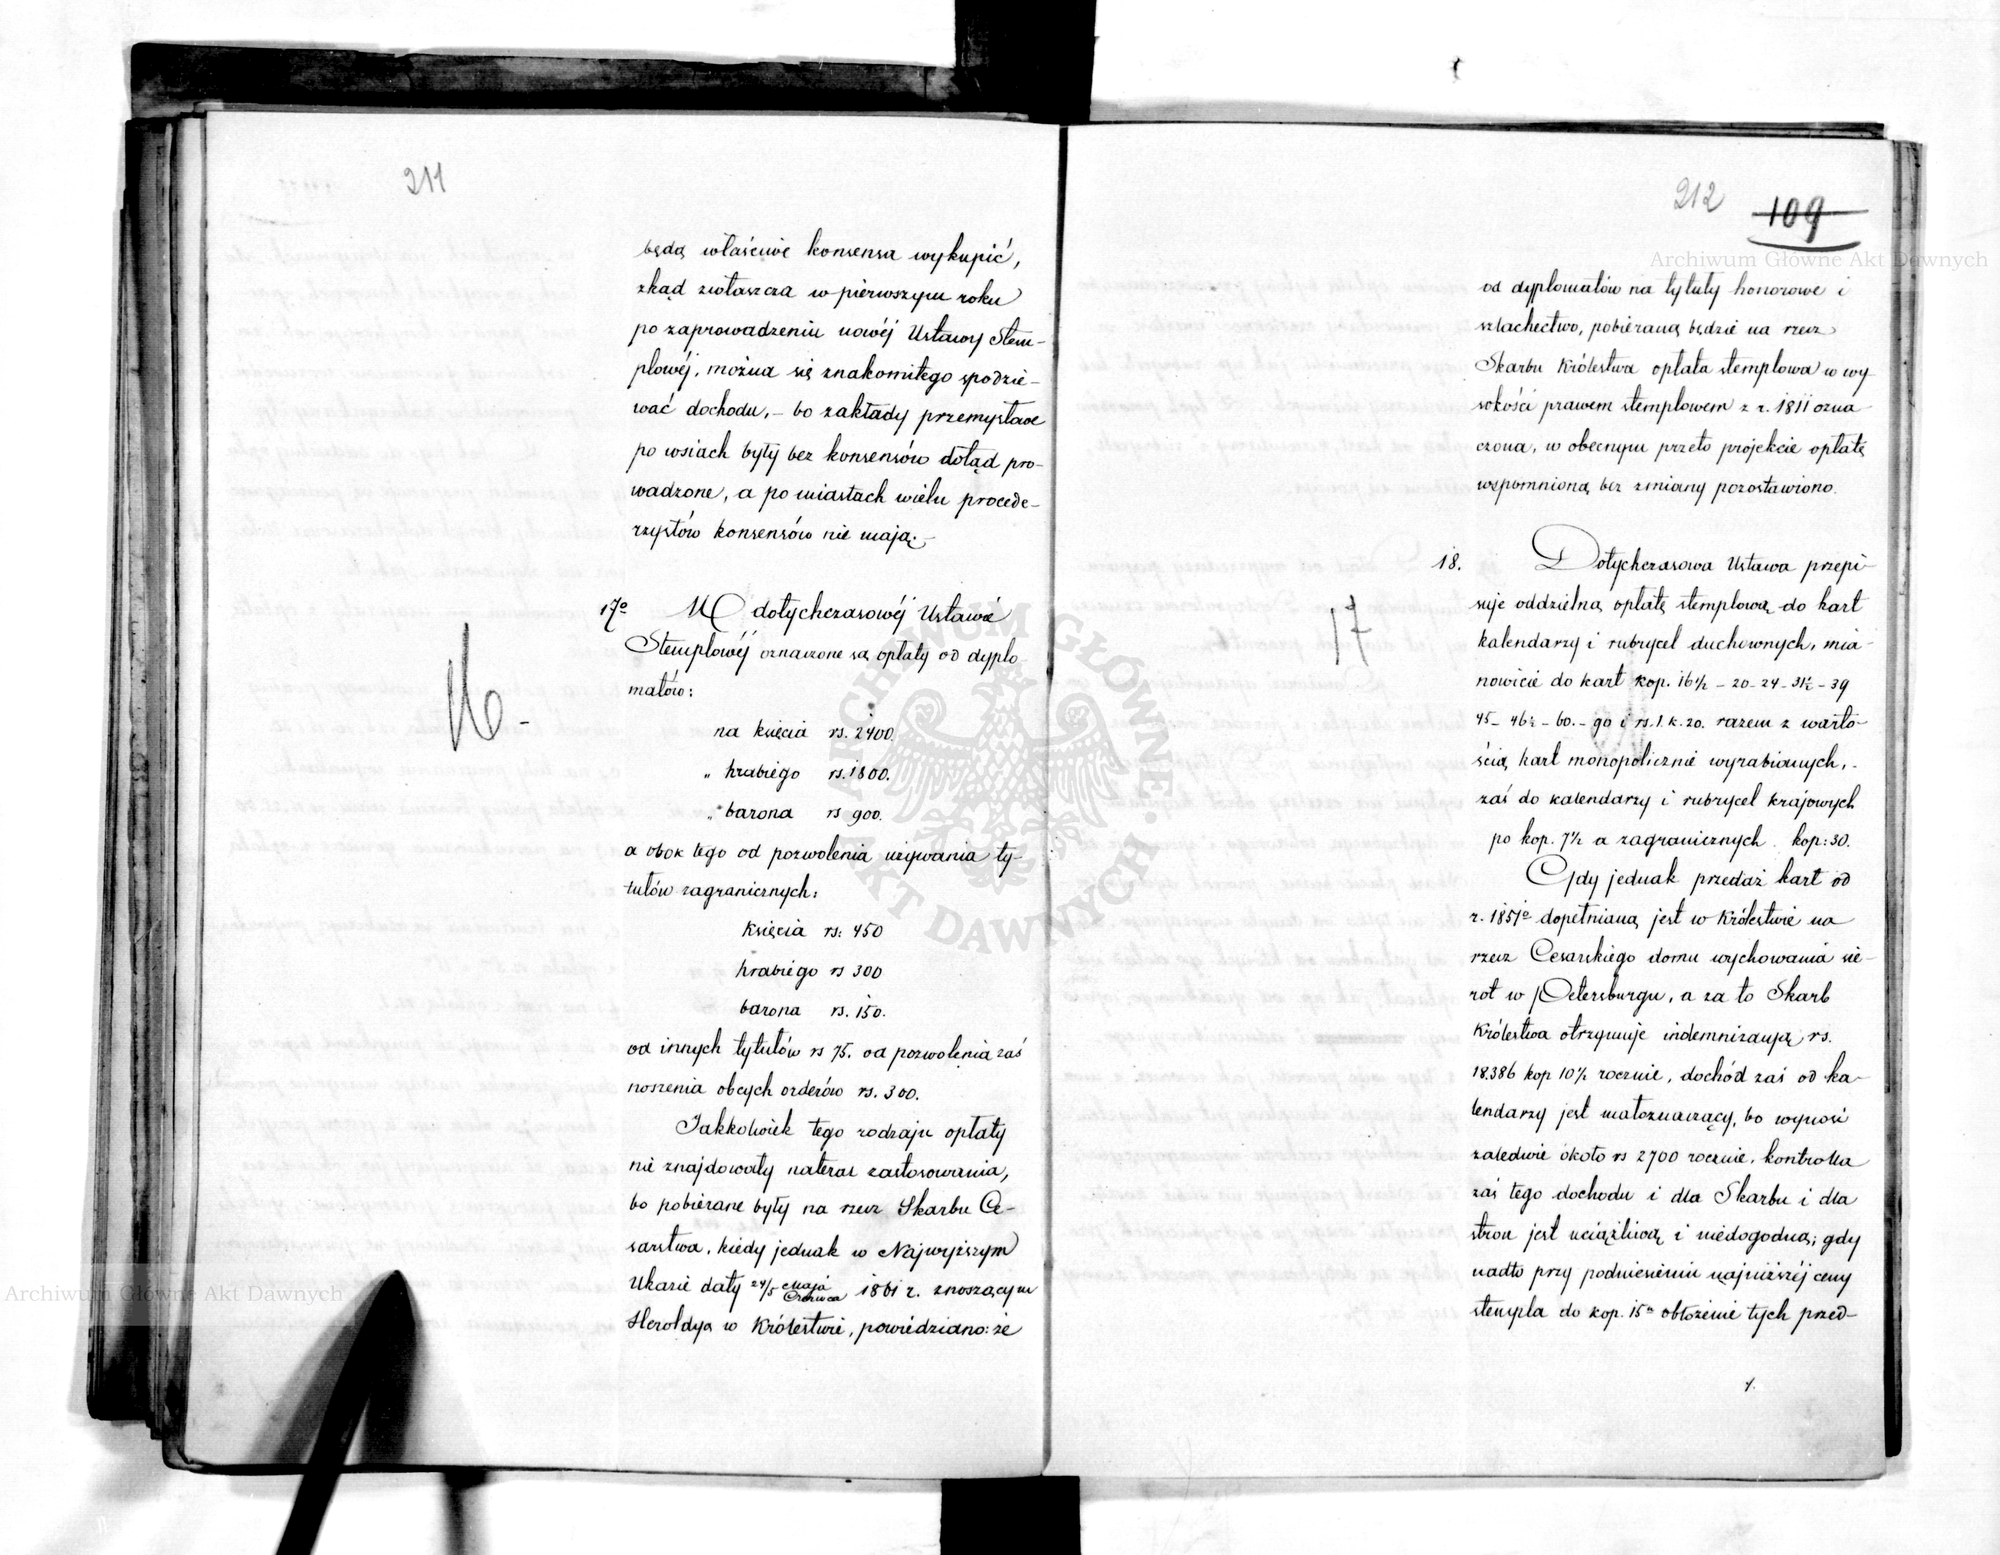 211
będą właściwe konsensa wykupić,
zkąd zwłaszcza w pierwszym roku
po zaprowadzeniu nowéj Ustawy Stem-
plowéj, można się znakomitego spodzie-
wać dochodu, – bo zakłady przemysłowe
po wsiach były bez konsensów dotąd pro-
wadzone, a po miastach wielu procede-
rzystów konsensów nie mają. –
17o W dotychczasowéj Ustawie
Stemplowéj oznaczone są opłaty od dyplo-
matów:
16 -
na księcia rs. 2400.
„ hrabiego rs. 1800.
„ barona rs 900.
a obok tego od pozwolenia używania ty-
tułów zagranicznych:
księcia rs: 450
hrabiego rs 300
barona rs. 150.
od innych tytułów rs 75. od pozwolenia zaś
noszenia obcych orderów rs. 300.
Jakkolwiek tego rodzaju opłaty
nie znajdowały nateraz zastosowania,
bo pobierane były na rzecz Skarbu Ce-
sarstwa, kiedy jednak w Najwyższym
Ukazie daty 24/5 Maja/Czerwca 1861 r. znoszącym
Heroldyą w Królestwie, powiedziano: że
212 109
od dyplomatów na tytuły honorowe i
szlachectwo, pobieraną będzie na rzecz
Skarbu Królestwa opłata stemplowa w wy
sokości prawem stemplowem z r. 1811 ozna
czona, w obecnym przeto projekcie opłatę
wspomnioną bez zmiany pozostawiono.
18. Dotychczasowa Ustawa przepi-
suje oddzielną opłatę stemplową do kart
17
kalendarzy i rubrycel duchownych, mia-
nowicie do kart kop. 16½ – 20 – 24 – 31½ – 39
45 – 46½ – 60. – 90 i rs. 1. k. 20. razem z warto-
ścią kart monopolicznie wyrabianych, -
zaś do kalendarzy i rubrycel krajowych
po kop. 7½ a zagranicznych kop: 30.
Gdy jednak przedaż kart od
r. 1851o dopełnianą jest w Królestwie na
rzecz Cesarskiego domu wychowania sie-
rot w Petersburgu, a za to Skarb
Królestwa otrzymuje indemnizacyą rs.
18.386 kop 10½ rocznie, dochód zaś od ka-
lendarzy jest małoznaczący, bo wynosi
zaledwie około rs 2700 rocznie, kontrolla
zaś tego dochodu i dla Skarbu i dla
stron jest uciążliwą i niedogodną; gdy
nadto przy podniesieniu najniższéj ceny
stempla do kop. 15a obłożenie tych przed-
Archiwum Główne Akt Dawnych
Archiwum Główne Akt Dawnych
ARCHIWUM GŁÓWNE AKT DAWNYCH